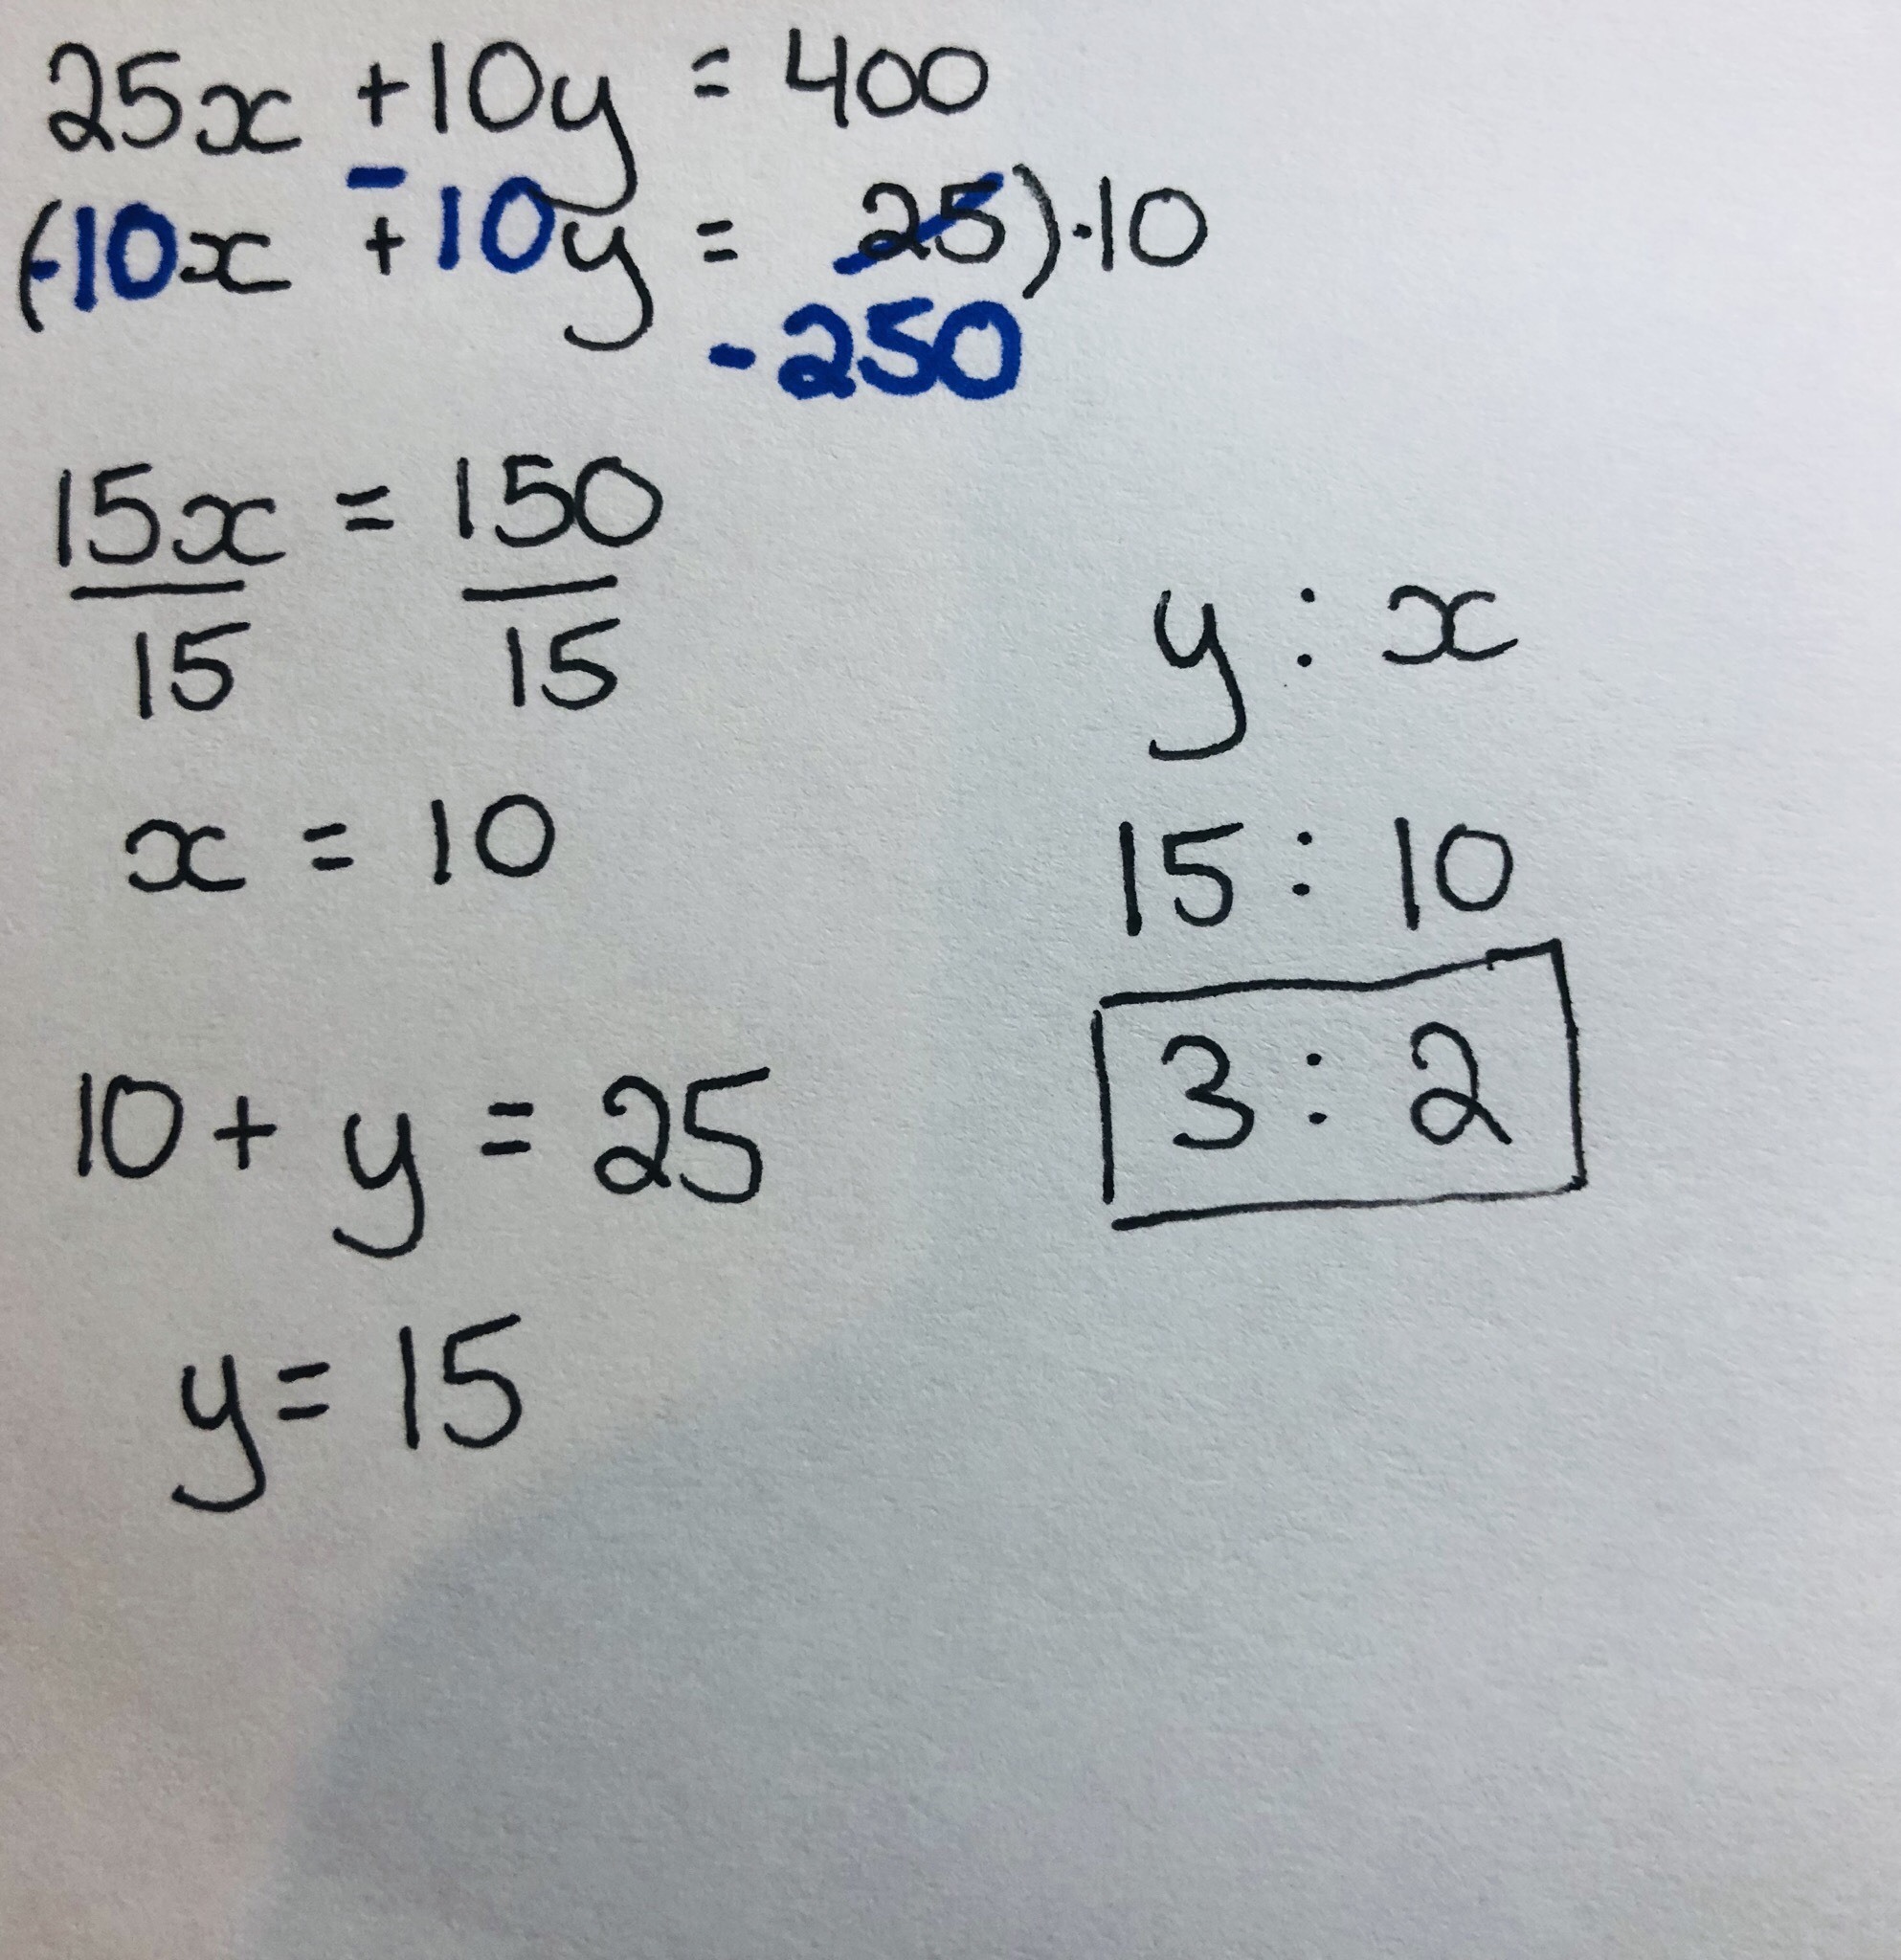 25x + 10y = 400
-
(-10x + 10y = 25) · 10
-250
15x = 150
15 15
x = 10
10 + y = 25
y = 15
y : x
15 : 10
3 : 2